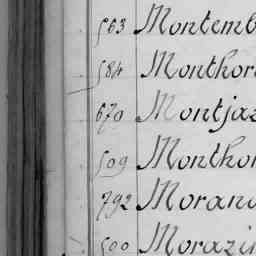 563 Montemb
584 Monthor
670 Montjaz
509 Monthor
792 Moran
500 Morazi